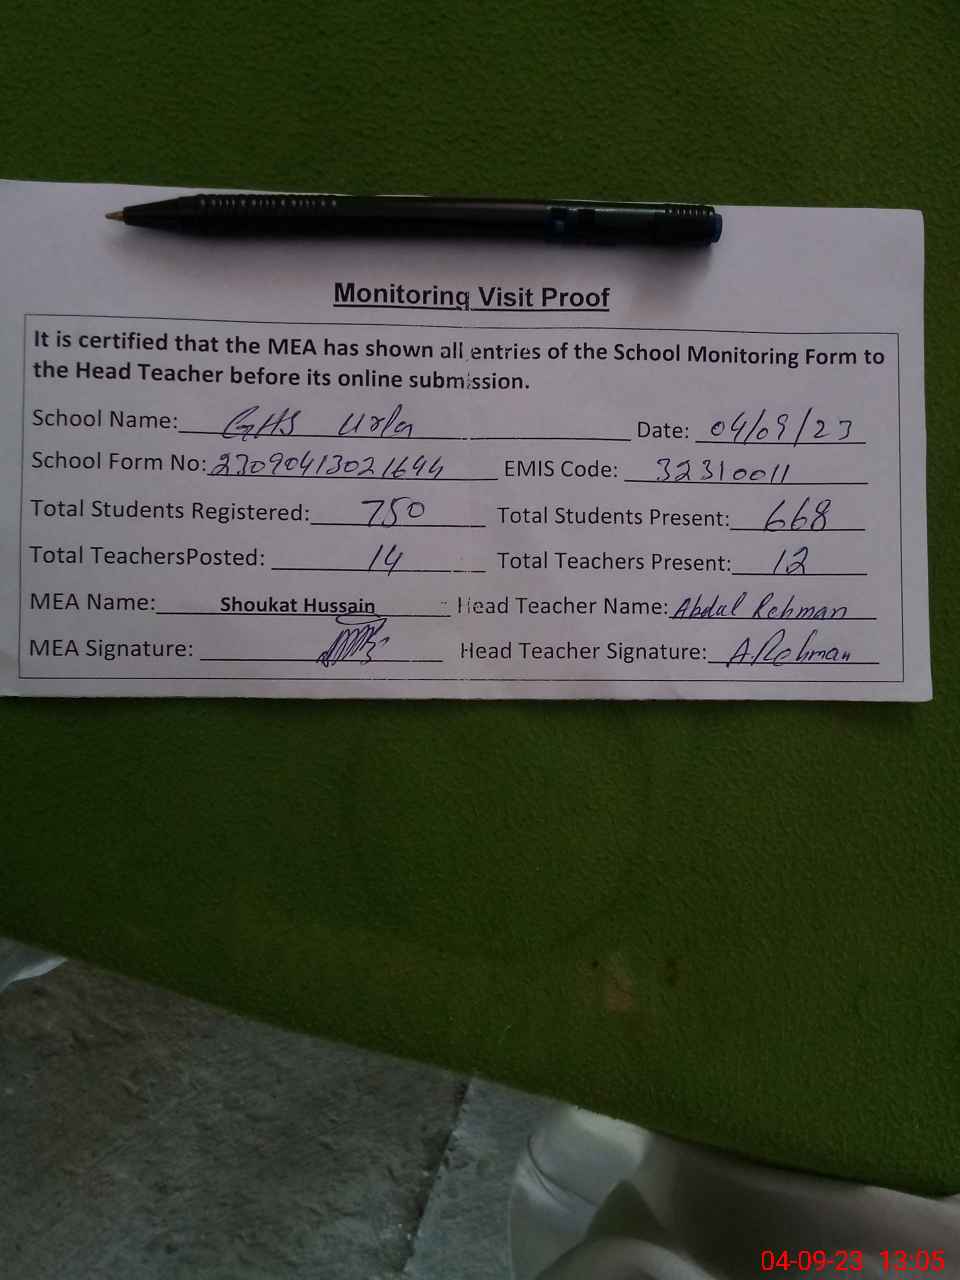 Monitoring Visit Proof
It is certified that the MEA has shown all entries of the School Monitoring Form to
the Head Teacher before its online submission.
School Name: GHS Urla Date: 04/09/23
School Form No: 23090413021644 EMIS Code: 32310011
Total Students Registered: 750 Total Students Present: 668
Total TeachersPosted: 14 Total Teachers Present: 12
MEA Name: Shoukat Hussain Head Teacher Name: Abdul Rehman
MEA Signature: Head Teacher Signature: A.Rehman
04-09-23 13:05